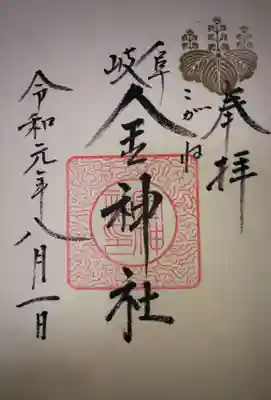 奉拝
岐阜
こがね
金神社
令和元年八月一日